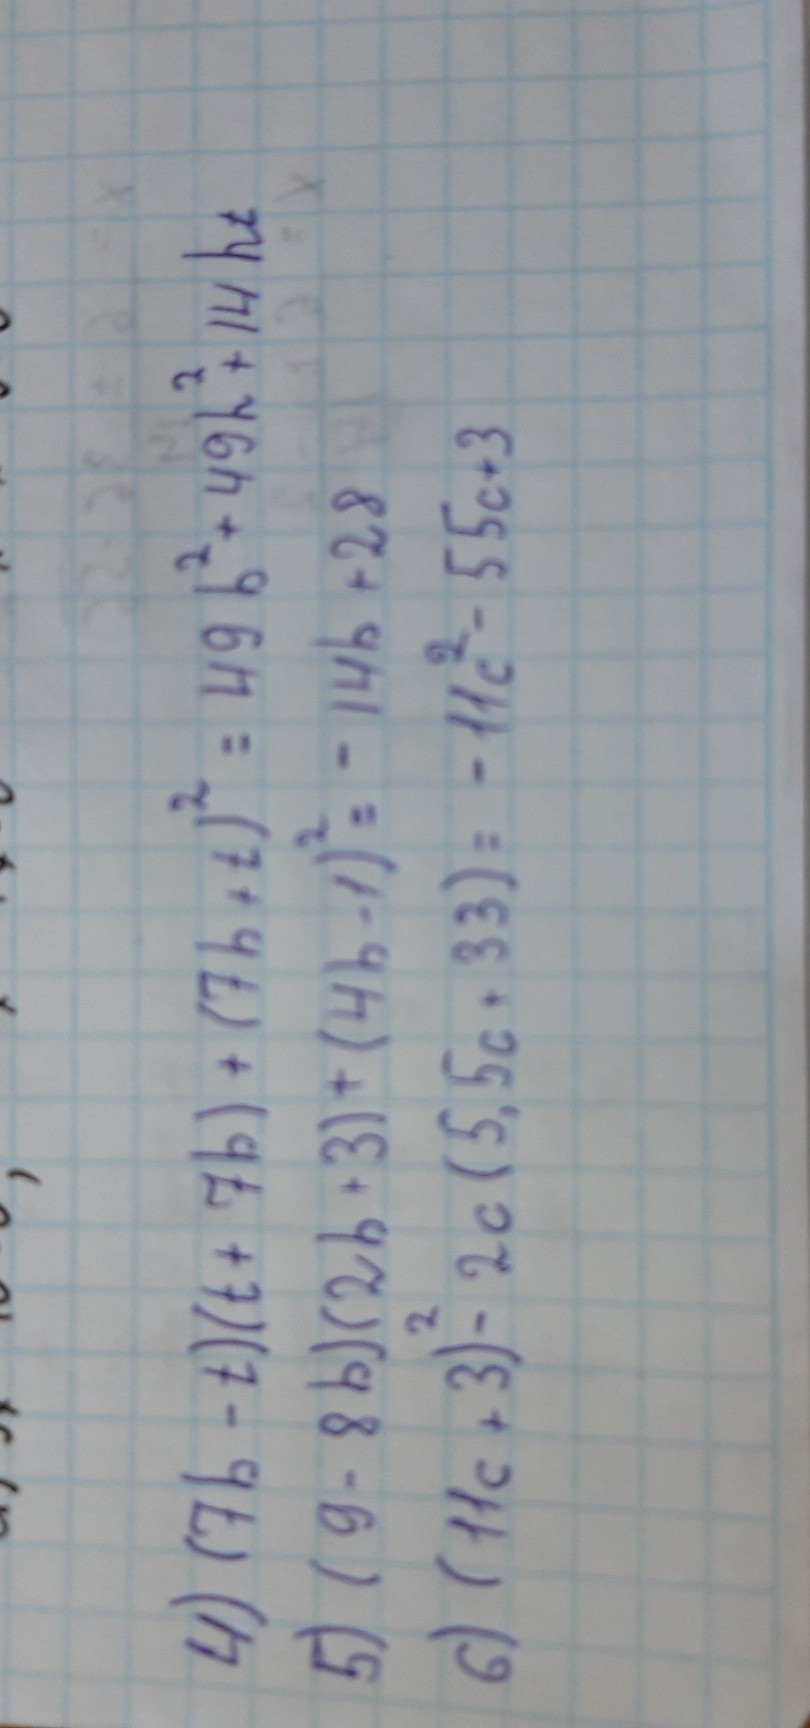 4) (7h - t)(t + 7h) + (7h + t)² = 49h² + 49h² + 14ht
5) (9 - 8h)(2h + 3) + (4h - 1)² = - 14h + 28
6) (11c + 3)² - 2c(5,5c + 33) = - 11c² - 55c + 3